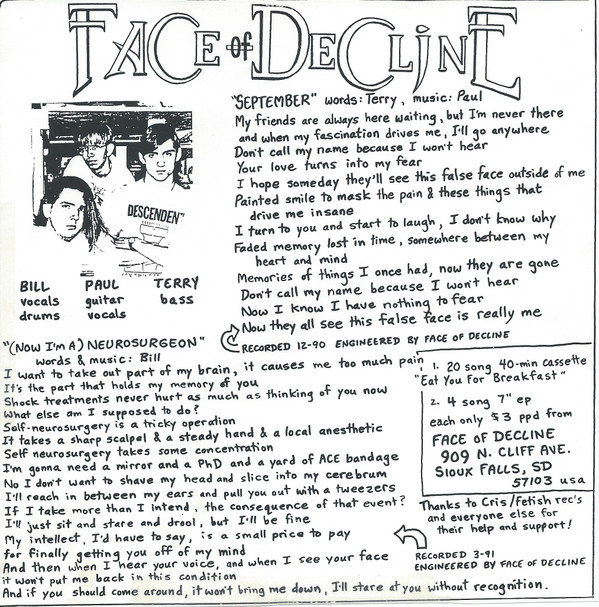 FACE of DECLINE
"SEPTEMBER" words: Terry, music: Paul
My friends are always here waiting, but I'm never there
and when my fascination drives me, I'll go anywhere
Don't call my name because I won't hear
Your love turns into my fear
I hope someday they'll see this false face outside of me
Painted smile to mask the pain & these things that
drive me insane
I turn to you and start to laugh, I don't know why
Faded memory lost in time, somewhere between my
heart and mind
Memories of things I once had, now they are gone
Don't call my name because I won't hear
Now I know I have nothing to fear
Now they all see this false face is really me
RECORDED 12-90 ENGINEERED BY FACE OF DECLINE
DESCENDEN"
BILL PAUL TERRY
vocals guitar bass
drums vocals
"(NOW I'M A) NEUROSURGEON"
words & music: Bill
I want to take out part of my brain, it causes me too much pain
It's the part that holds my memory of you
Shock treatments never hurt as much as thinking of you now
What else am I supposed to do?
Self-neurosurgery is a tricky operation
It takes a sharp scalpel & a steady hand & a local anesthetic
Self neurosurgery takes some concentration
I'm gonna need a mirror and a PhD and a yard of ACE bandage
No I don't want to shave my head and slice into my cerebrum
I'll reach in between my ears and pull you out with a tweezers
If I take more than I intend, the consequence of that event?
I'll just sit and stare and drool, but I'll be fine
My intellect, I'd have to say, is a small price to pay
for finally getting you off of my mind
And then when I hear your voice, and when I see your face
it won't put me back in this condition
And if you should come around, it won't bring me down, I'll stare at you without recognition.
1. 20 song 40-min cassette
"Eat You For Breakfast"
2. 4 song 7" ep
each only $3 ppd from
FACE OF DECLINE
909 N. CLIFF AVE.
SIOUX FALLS, SD
57103 usa
Thanks to Cris/Fetish rec's
and everyone else for
their help and support!
RECORDED 3-91
ENGINEERED BY FACE OF DECLINE